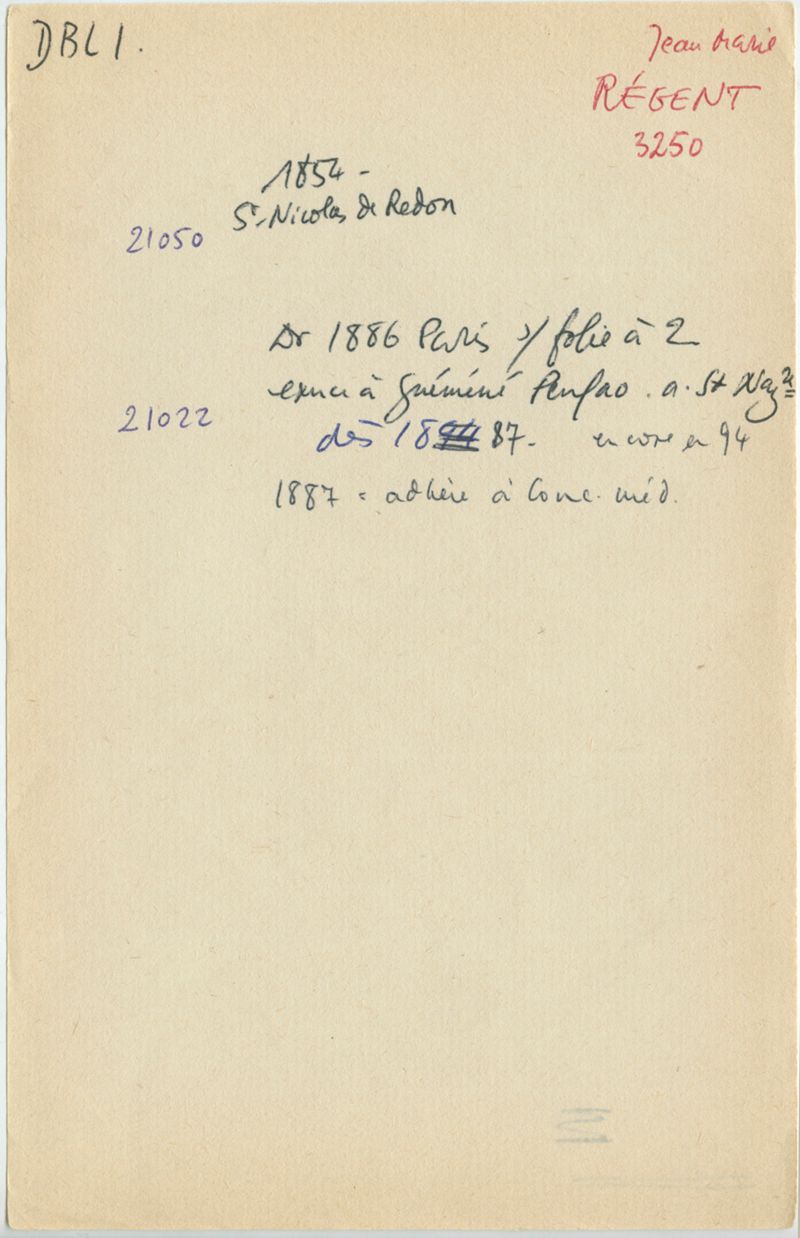 DBL 1.
Jean Marie
RÉGENT
3250
1854 -
St-Nicolas de Redon
21050
Dr 1886 Paris s/ folie à 2
exerce à Guéméné Penfao. a. St Naz re
21022
dès 18 87. encore en 94
1887 = adhère à Conc. méd.